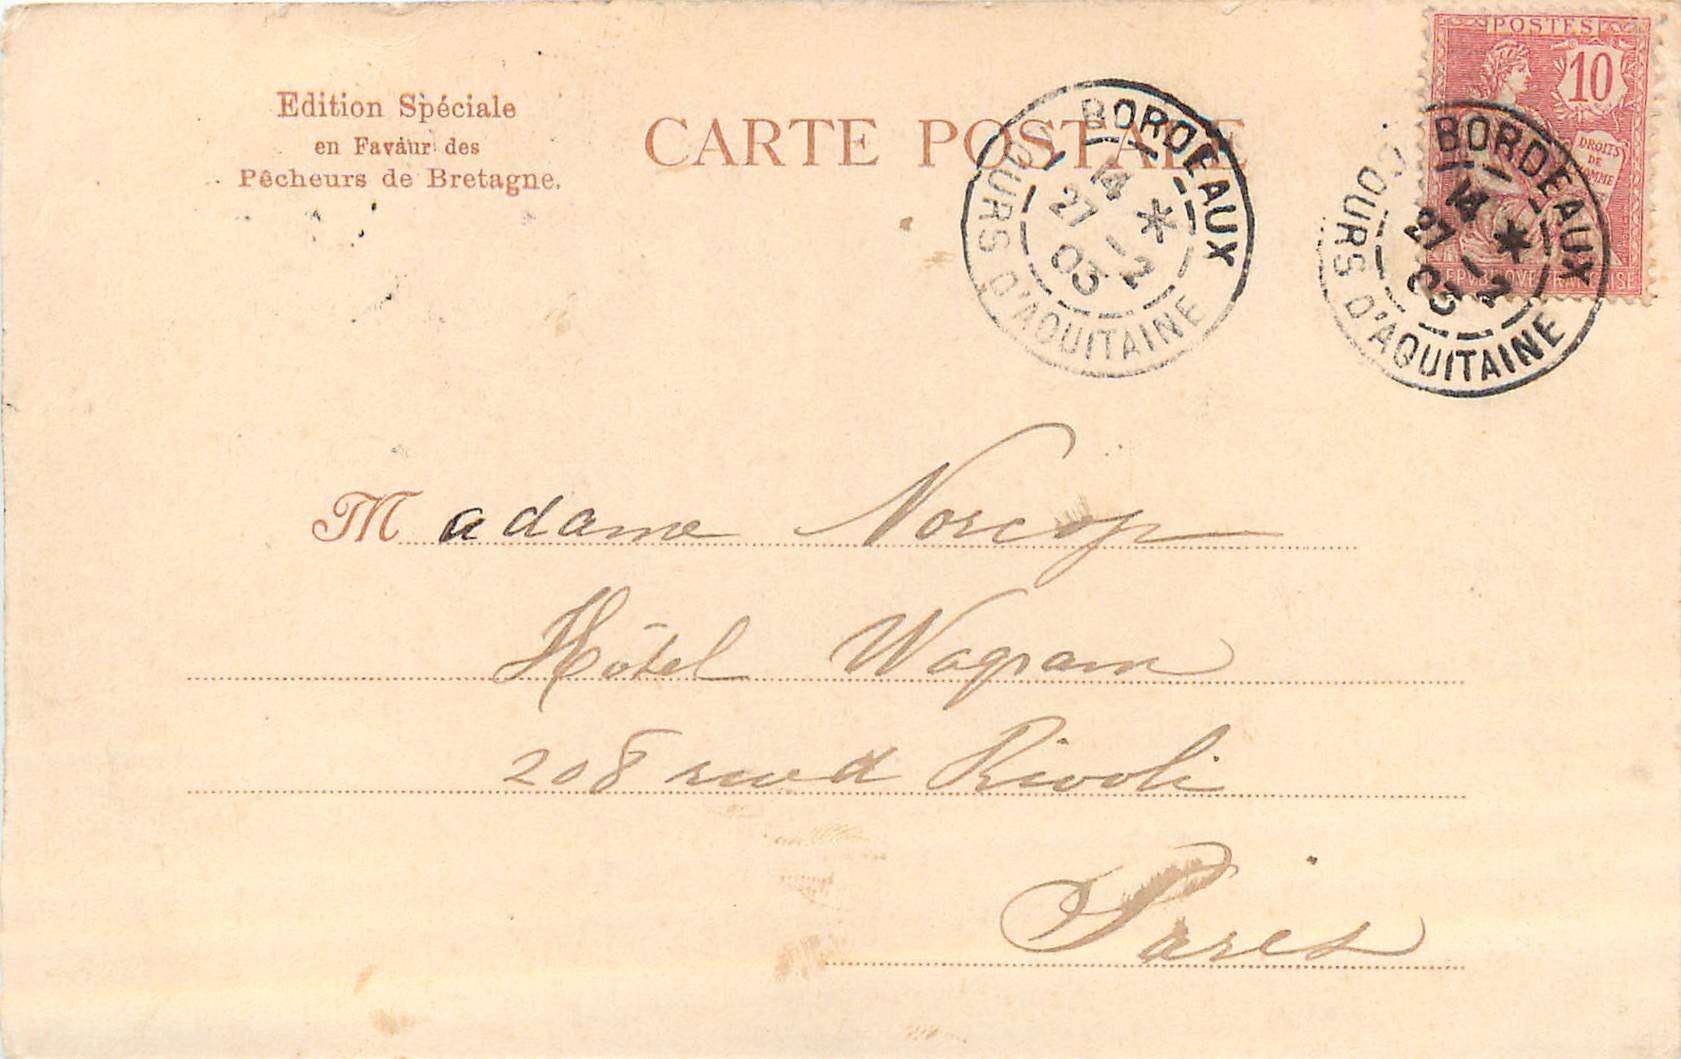 Edition Spéciale
en Favâur des
Pêcheurs de Bretagne.
CARTE POSTALE
BORDEAUX
COURS D'AQUITAINE
14 *
27 - 2
03
POSTES
10
DROITS
DE
HOMME
REPVBLIQVE FRANÇAISE
BORDEAUX
COURS D'AQUITAINE
14 *
27 - 2
03
Madame Norcop
Hôtel Wagram
208 rue d Rivoli
Paris